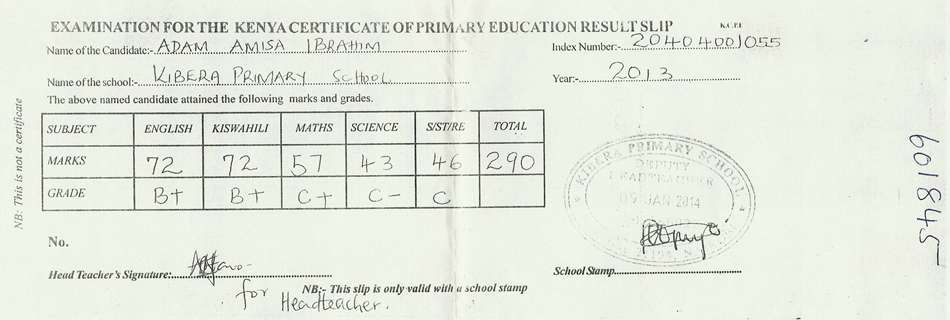 EXAMINATION FOR THE KENYA CERTIFICATE OF PRIMARY EDUCATION RESULT SLIP K.C.P.E
Name of the Candidate:- ADAM AMISA IBRAHIM Index Number:- 20404001055
Name of the school:- KIBERA PRIMARY SCHOOL Year:- 2013
The above named candidate attained the following marks and grades.
SUBJECT ENGLISH KISWAHILI MATHS SCIENCE S/ST/RE TOTAL
MARKS 72 72 57 43 46 290
GRADE B+ B+ C+ C- C
KIBERA PRIMARY SCHOOL
DEPUTY
HEADTEACHER
09 JAN 2014
No.
Head Teacher's Signature:
School Stamp
for Headteacher.
NB:- This slip is only valid with a school stamp
NB: This is not a certificate
601845